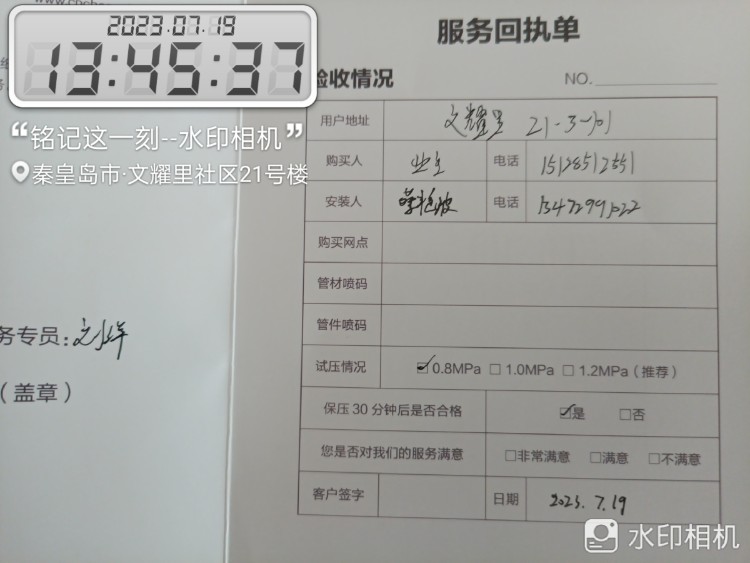 2023.07.19
13:45:37
“铭记这一刻--水印相机”
秦皇岛市·文耀里社区21号楼
服务回执单
验收情况
NO.
用户地址 文耀里 21-3-101
购买人 业主 电话 15128512551
安装人 电话
购买网点
管材喷码
管件喷码
试压情况 ☑0.8MPa □1.0MPa □1.2MPa（推荐）
保压30分钟后是否合格 ☑是 □否
您是否对我们的服务满意 □非常满意 □满意 □不满意
客户签字 日期 2023.7.19
务专员:
（盖章）
水印相机